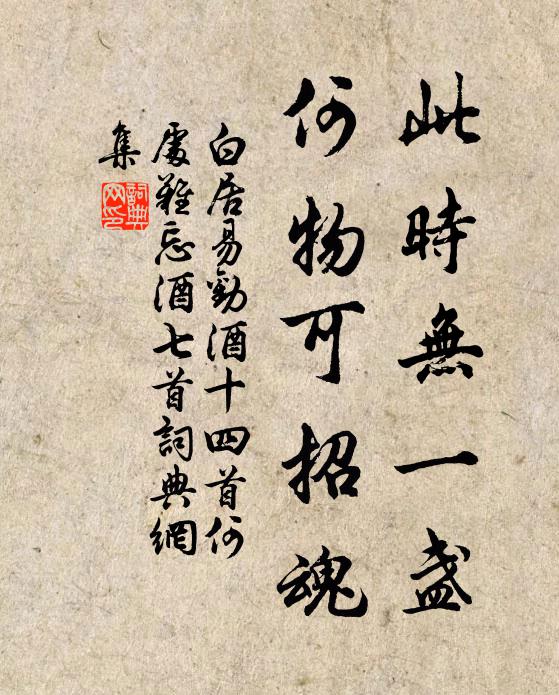 此時無一盞
何物可招魂
白居易勸酒十四首何
處難忘酒七首詞典網
集
詞典
网印